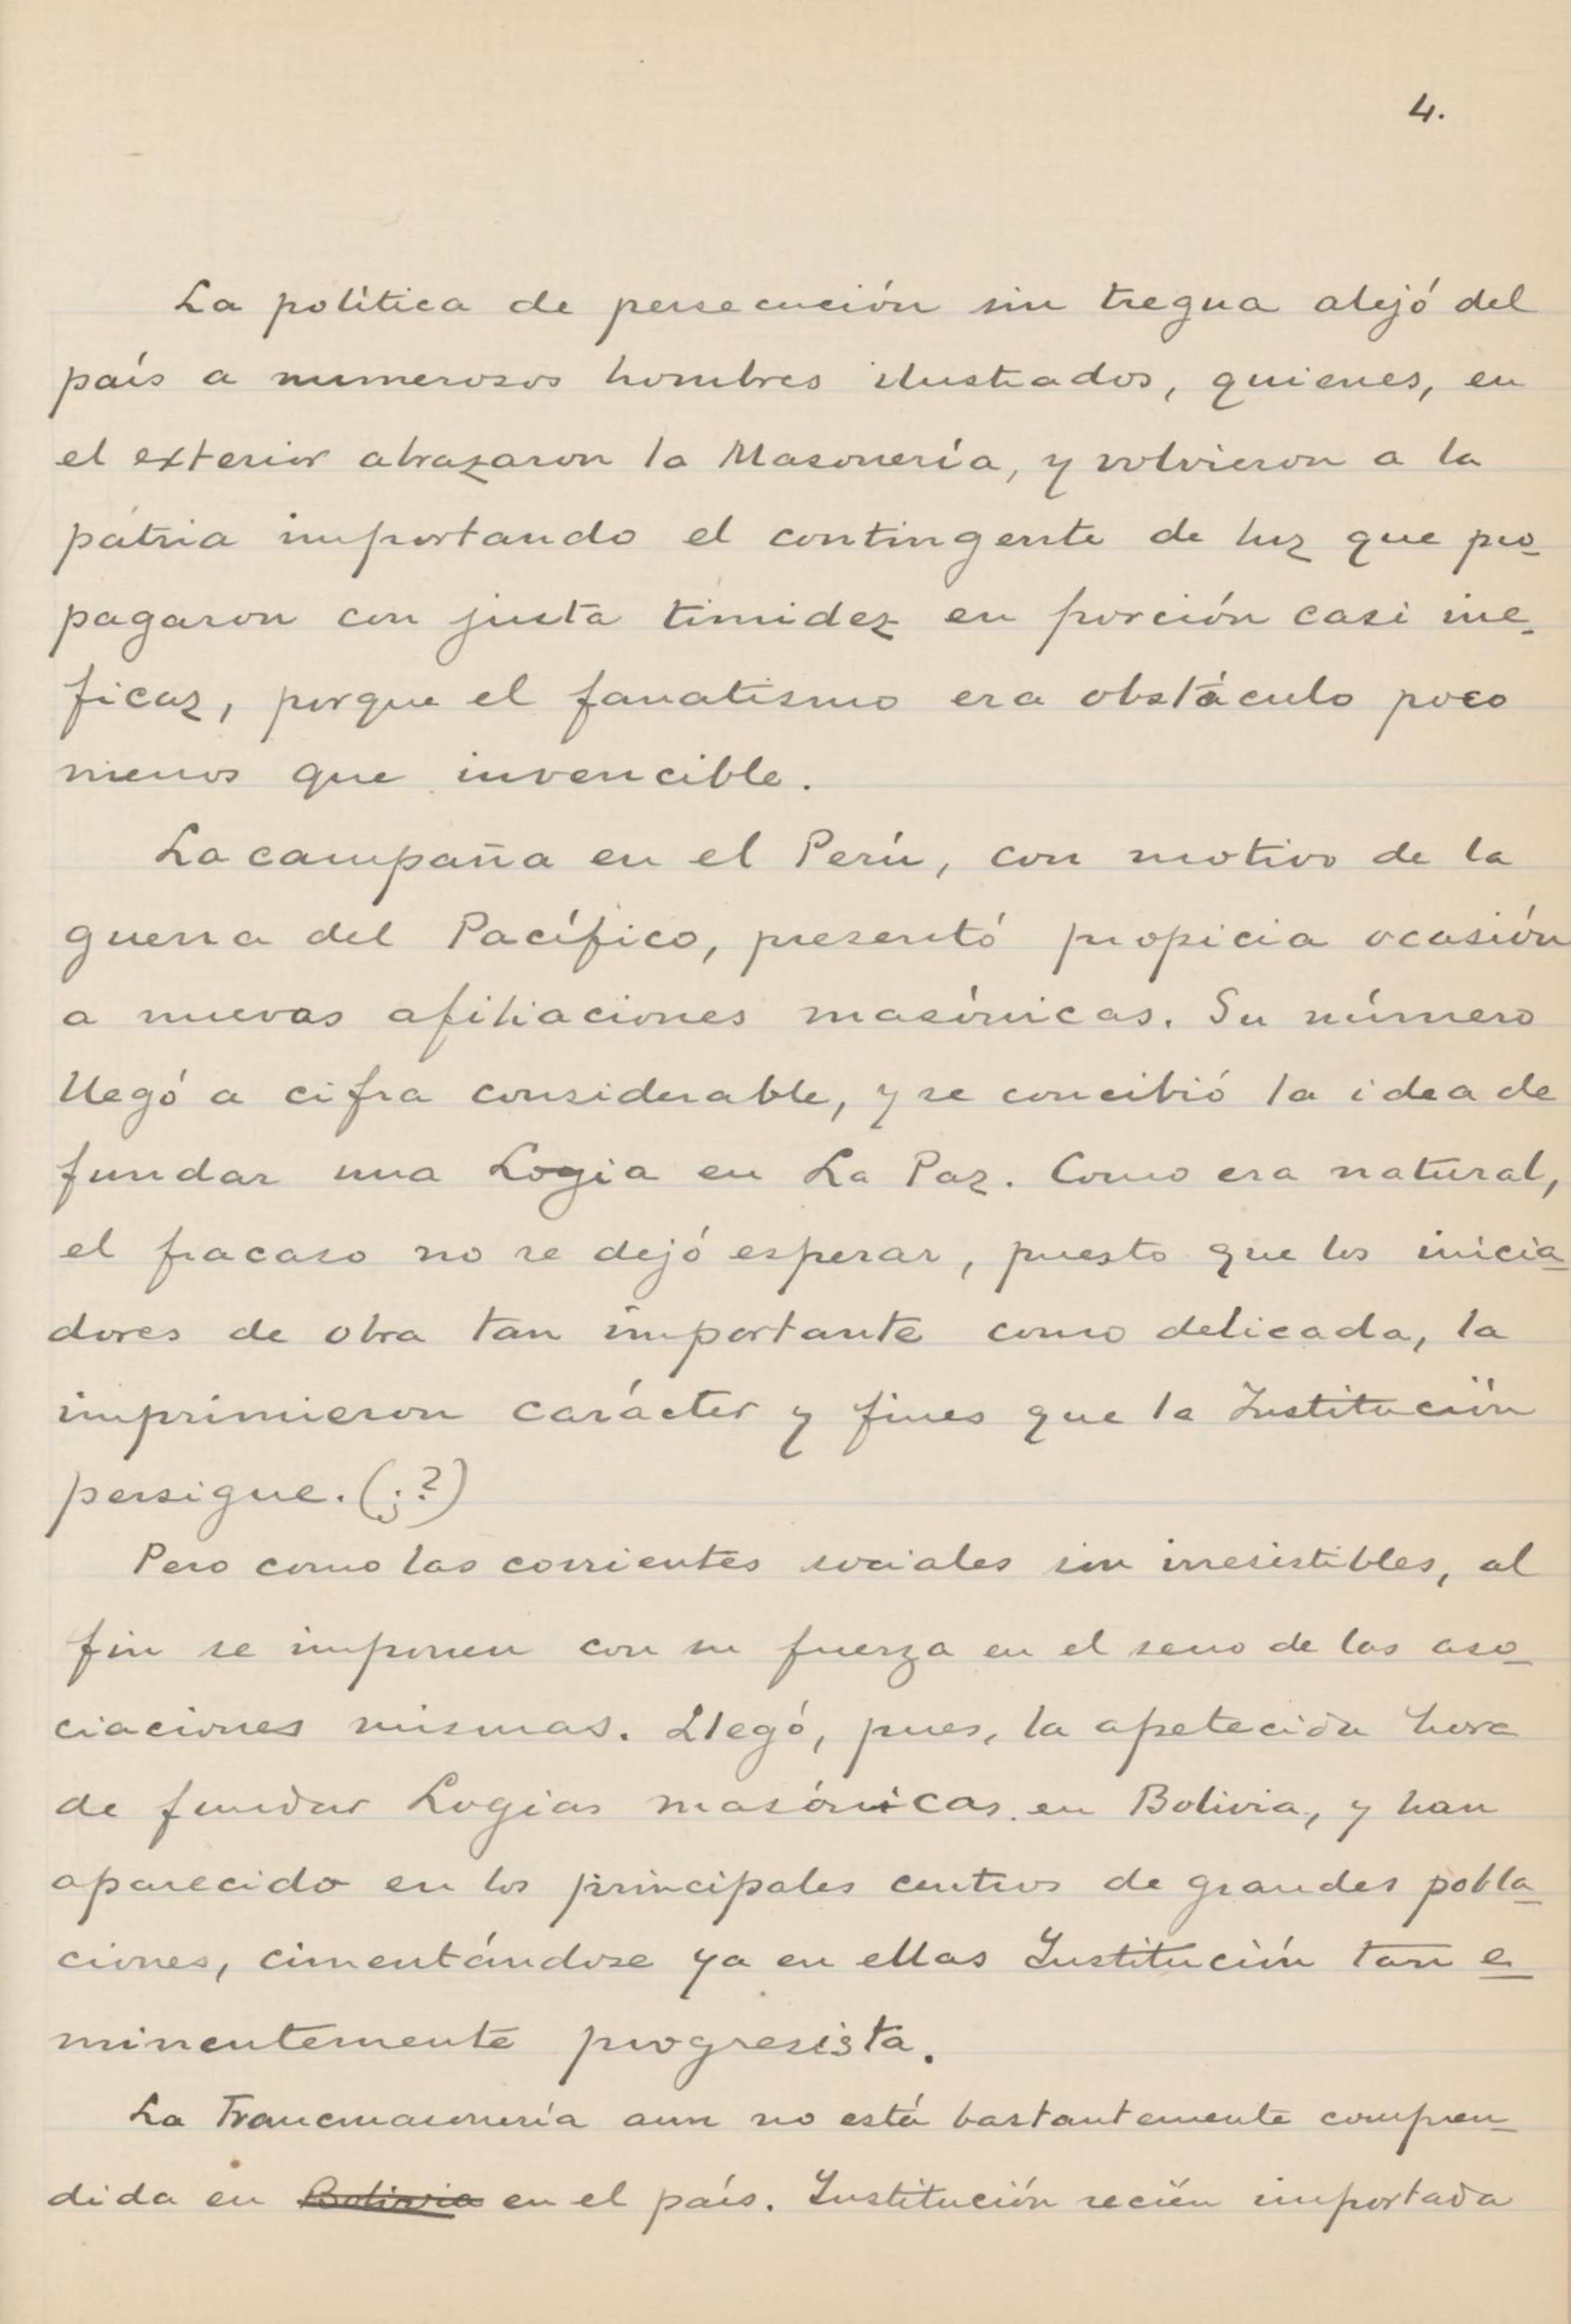 4.
La política de persecución sin tregua alejó del
país a numerosos hombres ilustrados, quienes, en
el exterior abrazaron la Masonería, y volvieron a la
pátria importando el contingente de luz que pro-
pagaron con justa timidez en porción casi ine-
ficaz, porque el fanatismo era obstáculo poco
menos que invencible.
La campaña en el Perú, con motivo de la
guerra del Pacífico, presentó propicia ocasión
a nuevas afiliaciones masónicas. Su número
llegó a cifra considerable, y se concibió la idea de
fundar una Logia en La Paz. Como era natural,
el fracaso no se dejó esperar, puesto que los inicia-
dores de obra tan importante como delicada, la
imprimieron carácter y fines que la Institución
persigue. (¿?)
Pero como las corrientes sociales son irresistibles, al
fin se imponen con su fuerza en el seno de las aso-
ciaciones mismas. Llegó, pues, la apetecida hora
de fundar Logias masónicas en Bolivia, y han
aparecido en los principales centros de grandes pobla-
ciones, cimentándose ya en ellas Institución tan e-
minentemente progresista.
La Francmasonería aun no está bastantemente compren-
dida en Bolivia en el país. Institución recién importada